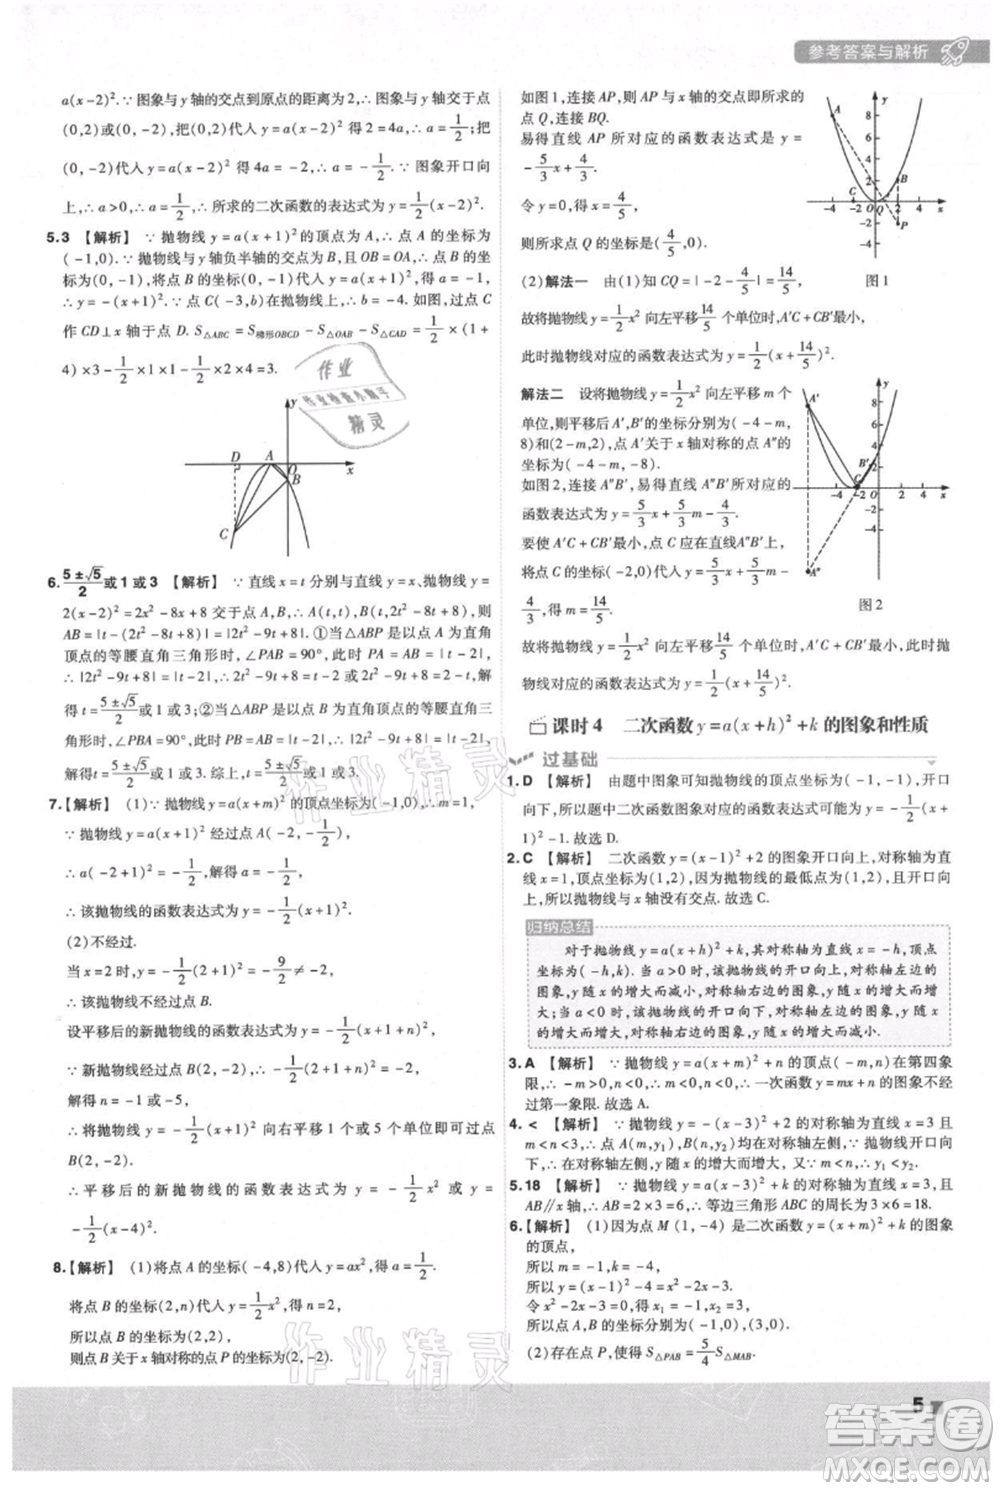 参考答案与解析
a(x-2)².∵图象与y轴的交点到原点的距离为2,∴图象与y轴交于点
(0,2)或(0,-2),把(0,2)代入y=a(x-2)²得2=4a,∴a=1/2;把
(0,-2)代入y=a(x-2)²得4a=-2,∴a=-1/2.∵图象开口向
上,∴a>0,∴所求的二次函数的表达式为y=1/2(x-2)².
5.3 【解析】 ∵抛物线y=a(x+1)²的顶点为A,∴点A的坐标为
(-1,0).∵抛物线与y轴负半轴的交点为B,且OB=OA,∴点B的坐
标为(0,-1).将点B的坐标代入抛物线的函数表达式,得a=-1,
∴y=-(x+1)².∵点C(-3,b)在抛物线上,∴b=-4.如图,过点C
作CD⊥x轴于点D.S△ABC=S梯形OBCD-S△OAB-S△CAD=1/2×(1+
4)×3-1/2×1×1-1/2×2×4=3.
y
D A O x
B
C
6.(5±√5)/2或1或3 【解析】 ∵直线x=t分别与直线y=x、抛物线y=
2(x-2)²=2x²-8x+8交于点A,B,∴A(t,t),B(t,2t²-8t+8),则
AB=|t-(2t²-8t+8)|=|2t²-9t+8|.①当△ABP是以点A为直角
顶点的等腰直角三角形时,∠PAB=90°,此时PA=AB=|t-2|,
∴|2t²-9t+8|=|t-2|,∴2t²-9t+8=t-2或2t²-9t+8=2-t,解
得t=(5±√5)/2或t=1或t=3;②当△ABP是以点B为直角顶点的等腰直角三角形时,
∠PBA=90°,此时PB=AB=|t-2|,∴|2t²-9t+8|=|t-2|,
解得t=(5±√5)/2或t=1或t=3.综上,t=(5±√5)/2或t=1或t=3.
7.【解析】 (1)∵抛物线y=a(x+m)²的顶点坐标为(-1,0),∴m=1,
∵抛物线y=a(x+1)²经过点A(-2,-1/2),
∴a(-2+1)²=-1/2,解得a=-1/2,
∴该抛物线的函数表达式为y=-1/2(x+1)².
(2)不经过.
∵当x=2时,y=-1/2(2+1)²=-9/2≠-2,
∴该抛物线不经过点B.
设平移后的新抛物线的函数表达式为y=-1/2(x+1-b)².
∵新抛物线经过点B(2,-2),∴-2=-1/2(2+1-b)²,
解得b=1或b=5,
∴将抛物线y=-1/2(x+1)²向右平移1个或5个单位即可过点
B(2,-2),
∴平移后的新抛物线的函数表达式为y=-1/2x²或y=
-1/2(x-4)².
8.【解析】 (1)将点A的坐标(-4,8)代入y=ax²,可求得a=1/2,
将点B的坐标(2,n)代入y=1/2x²,求得n=2,
所以点B的坐标为(2,2),
则点B关于x轴对称的点P的坐标为(2,-2).
如图1,连接AP,则AP与x轴的交点即为所求的
点Q,连接BQ.
易得直线AP所对应的函数表达式是y=
-5/3x+4/3.
令y=0,得x=4/5,
即所求点Q的坐标是(4/5,0).
图1
(2)解法一 由(1)知CQ=|-2-4/5|=14/5,
故将抛物线y=1/2x²向左平移14/5个单位时,A'C+CB'最小,
此时抛物线对应的函数表达式为y=1/2(x+14/5)².
解法二 设将抛物线y=1/2x²向左平移m个
单位,则平移后A',B'的坐标分别为(-4-m,
8)和(2-m,2),点A'关于x轴对称的点A″
的坐标为(-4-m,-8).
如图2,连接A″B',易得直线A″B'所对应的
函数表达式为y=5/3x+5/3m-4/3.
要使A'C+CB'最小,点C应在直线A″B'上,
将点C的坐标(-2,0)代入y=5/3x+5/3m-
4/3,得m=14/5.
图2
故将抛物线y=1/2x²向左平移14/5个单位时,A'C+CB'最小,此时抛
物线对应的函数表达式为y=1/2(x+14/5)².
课时4 二次函数y=a(x+h)²+k的图象和性质
过基础
1.D 【解析】 由题中图象可知抛物线的顶点坐标为(-1,-1),开口
向下,所以题中二次函数图象对应的函数表达式可能为y=-1/2(x+
1)²-1.故选D.
2.C 【解析】 二次函数y=(x-1)²+2的图象开口向上,对称轴为直
线x=1,顶点坐标为(1,2),因为抛物线的最低点为(1,2),所以
抛物线与x轴没有交点.故选C.
归纳总结
对于抛物线y=a(x+h)²+k,其对称轴为直线x=-h,顶点
坐标为(-h,k).当a>0时,该抛物线的开口向上,对称轴左边的
图象,y随x的增大而减小,对称轴右边的图象,y随x的增大而增
大;当a<0时,该抛物线的开口向下,对称轴左边的图象,y随x的
增大而增大,对称轴右边的图象,y随x的增大而减小.
3.A 【解析】 ∵抛物线y=(x+m)²+n的顶点(-m,n)在第四象
限,∴-m>0,n<0,∴m<0,∴一次函数y=mx+n的图象不经
过第一象限.故选A.
4.< 【解析】 ∵抛物线y=-(x-3)²+k的对称轴为直线x=3,且
m<n<3,∴点A(m,y₁),B(n,y₂)均在对称轴左侧,∵抛物线开口向
下,∴在对称轴左侧,y随x的增大而增大,∴y₁<y₂.
5.18 【解析】 ∵抛物线y=a(x-3)²+k的对称轴为直线x=3,且
AB∥x轴,∴AB=2×3=6,∴等边三角形ABC的周长为3×6=18.
6.【解析】 (1)因为点M(1,-4)是二次函数y=(x+m)²+k的图象
的顶点,
所以m=-1,k=-4,
所以二次函数的表达式为y=(x-1)²-4=x²-2x-3.
令x²-2x-3=0,解得x₁=-1,x₂=3,
所以点A,B的坐标分别为(-1,0),(3,0).
(2)存在点P,使S△PAB=5/4S△MAB.
5
作业精灵
作业检查小助手
作业精灵
作业精灵
答案圈
MXQE.COM